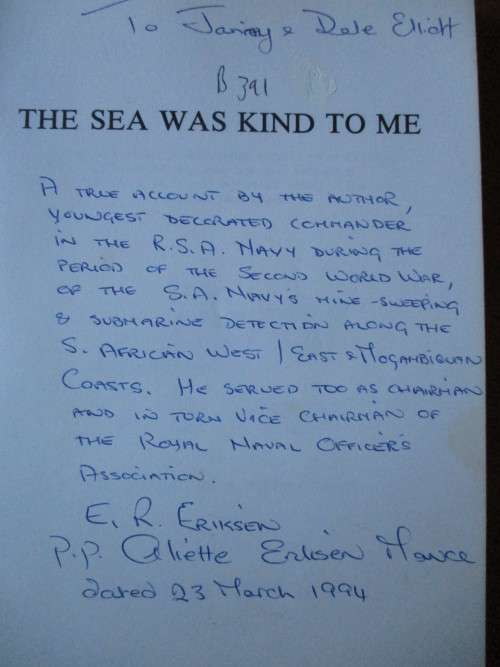 To Jammy & Dale Elliott
B 391
THE SEA WAS KIND TO ME
A TRUE ACCOUNT BY THE AUTHOR,
YOUNGEST DECORATED COMMANDER
IN THE R.S.A. NAVY DURING THE
PERIOD OF THE SECOND WORLD WAR,
OF THE S.A. NAVY'S MINE-SWEEPING
& SUBMARINE DETECTION ALONG THE
S. AFRICAN WEST / EAST & MOÇAMBIQUAN
COASTS. HE SERVED TOO AS CHAIRMAN
AND IN TURN VICE CHAIRMAN OF
THE ROYAL NAVAL OFFICER'S
ASSOCIATION.
E. R. ERIKSEN
P.P. Aliette Eriksen
dated 23 March 1994